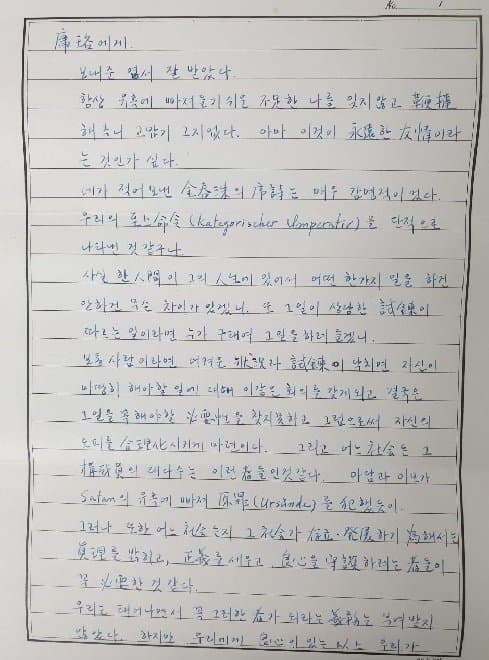 No. 1
席珞에게.
보내준 엽서 잘 받았다.
항상 유혹에 빠져들기 쉬운 不足한 나를 잊지않고 鞭撻
해주니 고맙기 그지없다. 아마 이것이 永遠한 友情이라
는 것인가 싶다.
네가 적어보낸 金春洙의 序詩는 매우 감명적이었다.
우리의 命令(Kategorischer Imperativ)을 단적으로
나타낸 것 같구나.
사실 한 人間이 그의 人生에 있어서 어떤 한가지 일을 하건
안하건 무슨 차이가 있겠니. 또 그일이 상당한 試鍊이
따르는 일이라면 누가 구태여 그일을 하려 들겠니.
보통사람이라면 어려운 狀況과 試鍊이 닥치면 자신이
마땅히 해야할 일에 대해 이같은 회의를 갖게되고 결국은
그일을 꼭 해야할 必要性을 찾지못하고 그럼으로써 자신의
도피를 合理化시키게 마련이다. 그리고 어느 社會든 그
構成員의 대다수는 이런 者들인것같다. 아담과 이브가
Satan의 유혹에 빠져 原罪(Ursünde)를 犯했듯이.
그러나 또한 어느 社會든지 그 社會가 存立·發展하기 爲해서는
眞理를 밝히고, 正義를 세우고 良心을 守護하려는 者들이
꼭 必要한 것 같다.
우리는 태어나면서 꼭 그러한 者가 되라는 義務는 부여받지
않았다. 하지만 우리에게 良心이 있는 以上 우리가